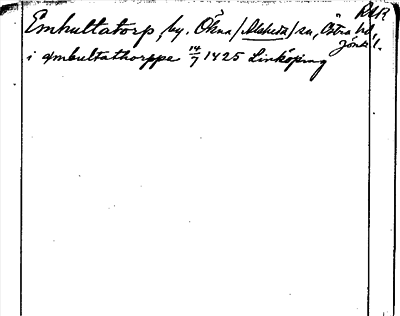 RAP.
Emhultatorp, by. Ökna /Alseda/ sn, Östra hd,
Jönk l.
i æmbultathorppe 14/7 1425 Linköping